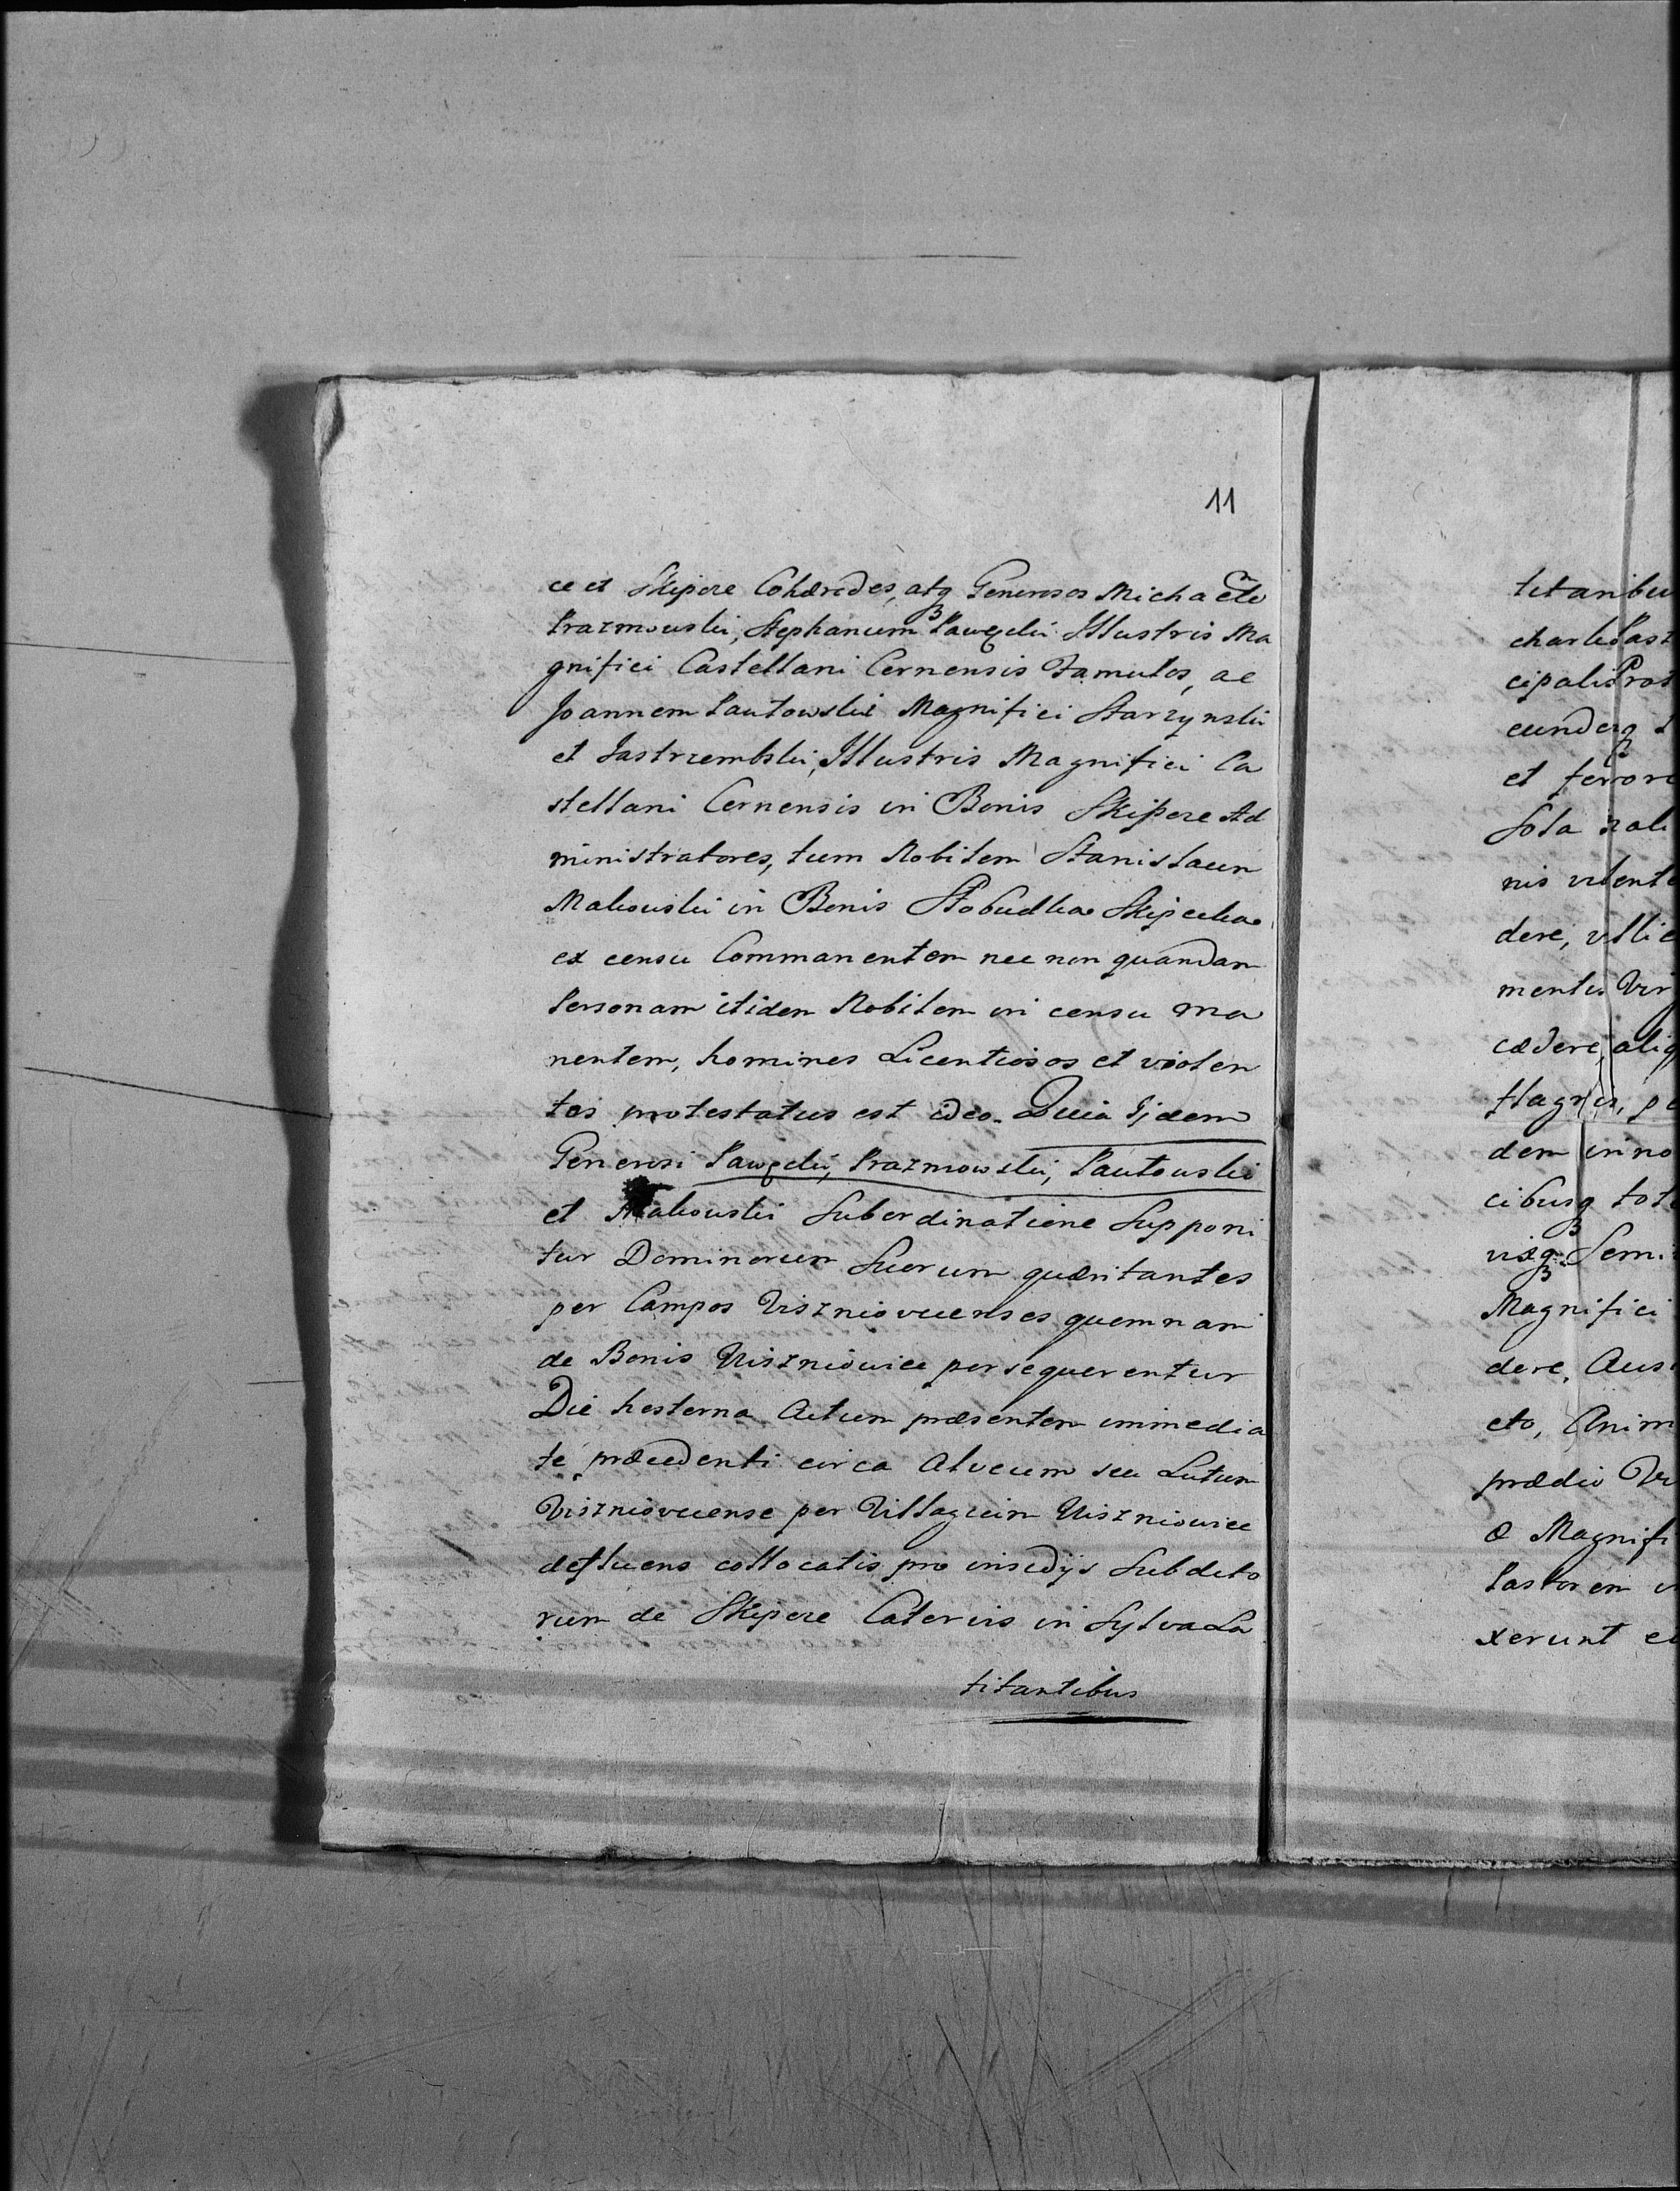 11
ce et Skipere Cohæredes, atq3 Generosos Michaele
Prazmowski, Stephanum Pawęcki Illustris Ma
gnifici Castellani Cernensis Famulos, ac
Joannem Pautowski Magnifici Starzynski
et Jastrzembski, Illustris Magnifici Ca
stellani Cernensis in Bonis Skipere Ad
ministratores, tum Nobilem Stanislaum
Makowski in Bonis Słobudka
ex censu Commanentem nec non quandam
Personam itidem Nobilem in censu ma
nentem, homines Licentiosos et violen
tos protestatus est ideo. Quia Ijdem
Generosi Pawęcki, Prazmowski, Pautowski
et Makowski Subordinatione Supponi
tur Dominorum Suorum quæritantes
per Campos Viszniovecenses quemnam
de Bonis Viszniowiec persequerentur
Die hesterna Actum præsentem immedia
te præcedenti circa Alveum seu Lutum
Viszniovecense per Villagium Viszniowiec
defluens collocatis pro insidijs Subdito
rum de Skipere Catervis in Sylva La
titantibus
titanibu
charle Pasz
cipali Prot
eundeq3
et terrore
Sola
nis
dere, ulli
mentis Vir
cædere, aliq
flagris, p
dem in no
cibusq3 tot
visq3 Semi
Magnifici
dere, Aus
eto, Anim
prædio Vi
& Magnifi
Pastorem
xerunt e